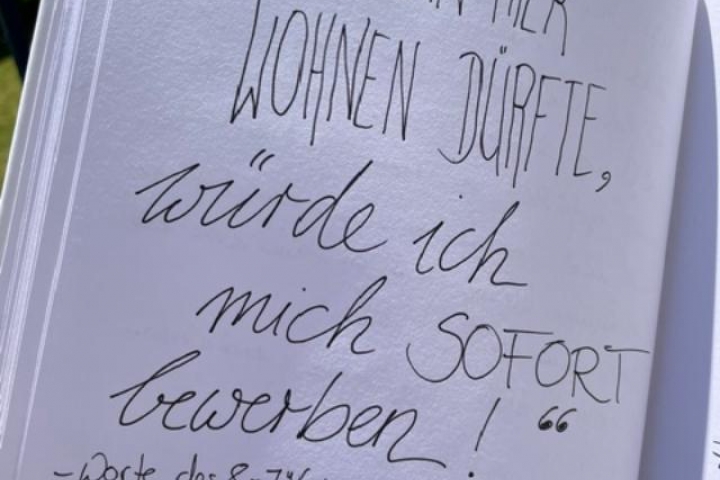 HIER
WOHNEN DÜRFTE,
würde ich
mich SOFORT
bewerben! “
- Worte des